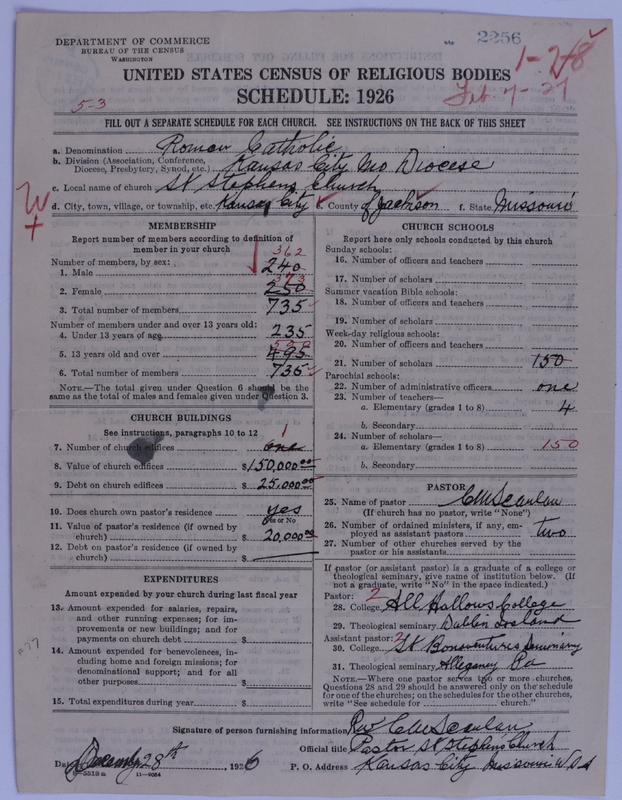 DEPARTMENT OF COMMERCE
BUREAU OF THE CENSUS
WASHINGTON
2256
1-28
UNITED STATES CENSUS OF RELIGIOUS BODIES
SCHEDULE: 1926
5-3
Feb. 7-27
FILL OUT A SEPARATE SCHEDULE FOR EACH CHURCH. SEE INSTRUCTIONS ON THE BACK OF THIS SHEET
a. Denomination Roman Catholic
b. Division (Association, Conference, Diocese, Presbytery, Synod, etc.) Kansas City Mo Diocese
c. Local name of church St Stephens Church
d. City, town, village, or township, etc. Kansas City e. County of Jackson f. State Missouri
MEMBERSHIP
Report number of members according to definition of member in your church
Number of members, by sex:
362
1. Male 240
373
2. Female 250
3. Total number of members 735
Number of members under and over 13 years old:
4. Under 13 years of age 235
500
5. 13 years old and over 495
6. Total number of members 735
NOTE.—The total given under Question 6 should be the same as the total of males and females given under Question 3.
CHURCH BUILDINGS
See instructions, paragraphs 10 to 12
1
7. Number of church edifices one
8. Value of church edifices $150,000.00
9. Debt on church edifices $25,000.00
10. Does church own pastor's residence? yes
Yes or No
11. Value of pastor's residence (if owned by church) $20,000.00
12. Debt on pastor's residence (if owned by church) $
EXPENDITURES
Amount expended by your church during last fiscal year
13. Amount expended for salaries, repairs, and other running expenses; for improvements or new buildings; and for payments on church debt $
14. Amount expended for benevolences, including home and foreign missions; for denominational support; and for all other purposes $
15. Total expenditures during year $
CHURCH SCHOOLS
Report here only schools conducted by this church
Sunday schools:
16. Number of officers and teachers
17. Number of scholars
Summer vacation Bible schools:
18. Number of officers and teachers
19. Number of scholars
Week-day religious schools:
20. Number of officers and teachers
21. Number of scholars 150
Parochial schools:
22. Number of administrative officers one
23. Number of teachers—
a. Elementary (grades 1 to 8) 4
b. Secondary
24. Number of scholars—
a. Elementary (grades 1 to 8) 150
b. Secondary
PASTOR
25. Name of pastor C M Scanlan
(If church has no pastor, write "None")
26. Number of ordained ministers, if any, employed as assistant pastors two
27. Number of other churches served by the pastor or his assistants
If pastor (or assistant pastor) is a graduate of a college or theological seminary, give name of institution below. (If not a graduate, write "No" in the space indicated.)
Pastor: 2
28. College All Hallows College
29. Theological seminary Dublin Ireland
Assistant pastor: 2
30. College St Bonaventures Seminary
31. Theological seminary Allegany Pa
NOTE.—Where one pastor serves two or more churches, Questions 28 and 29 should be answered only on the schedule for one of the churches; on the schedules for the other churches, write "See schedule for church."
Signature of person furnishing information Rev C M Scanlan
Official title Pastor St Stephens Church
Date December 28th, 1926 P. O. Address Kansas City Missouri U.S.A
11—9084